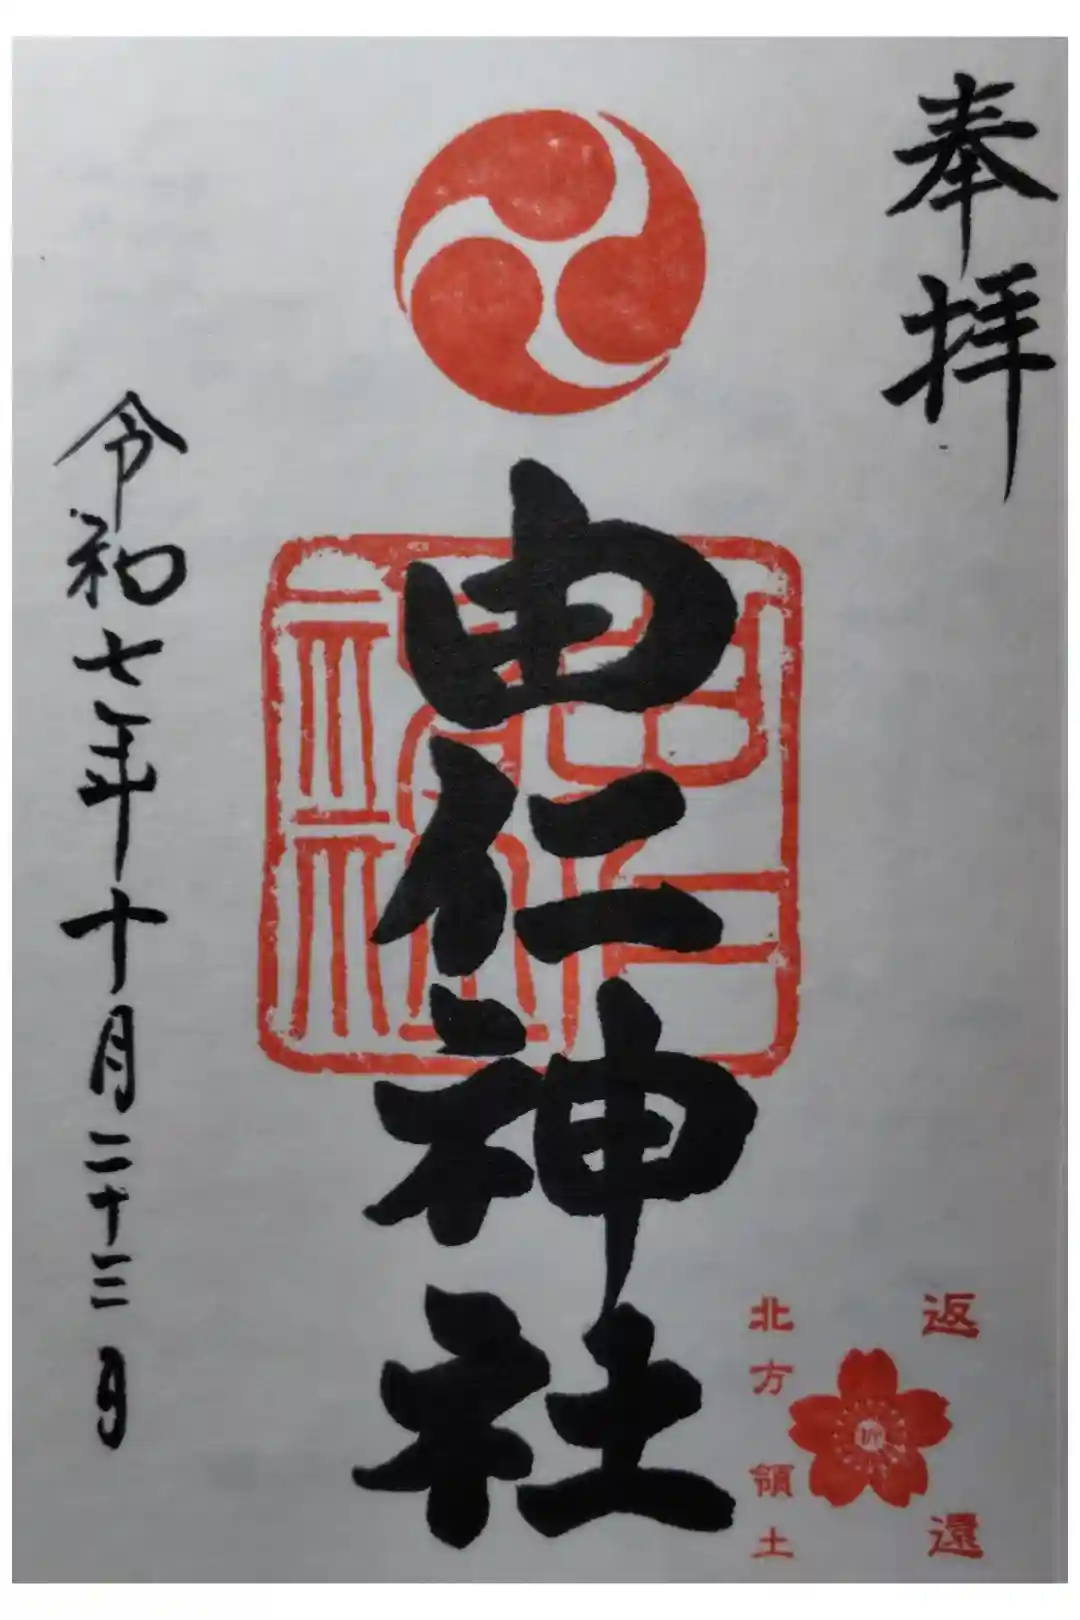 奉拝
由仁神社
由仁神社
令和七年十月二十三日
返還
祈
北方領土